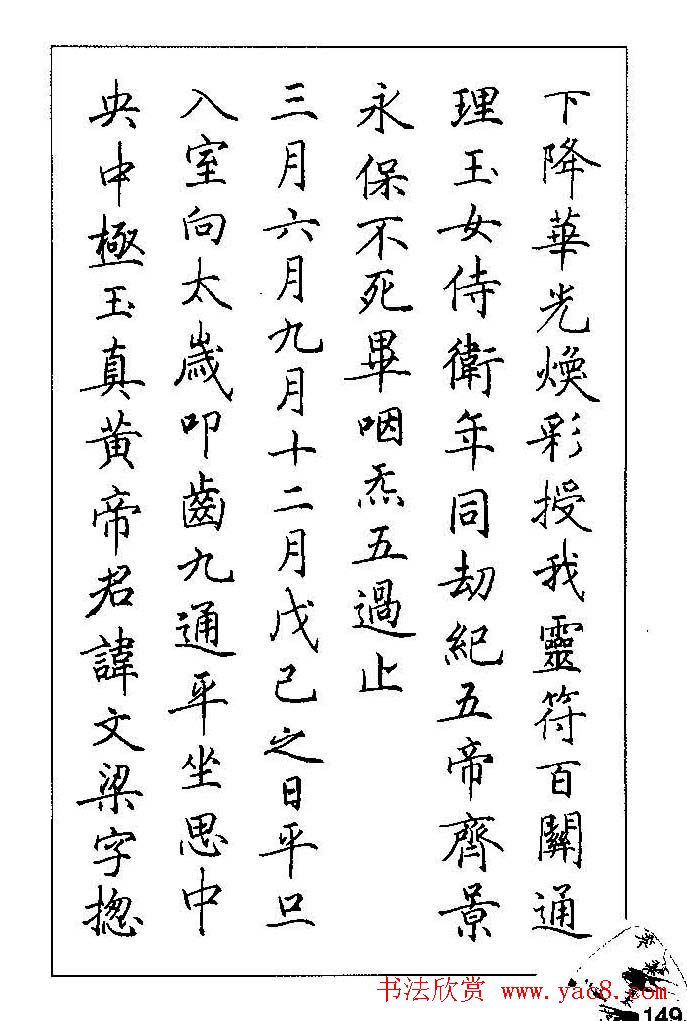 下降華光煥彩授我靈符百關通
理玉女侍衛年同劫紀五帝齊景
永保不死畢咽炁五過止
三月六月九月十二月戊己之日平旦
入室向太歲叩齒九通平坐思中
央中極玉真黄帝君諱文梁字揔
书法欣赏 www.yac8.com
149